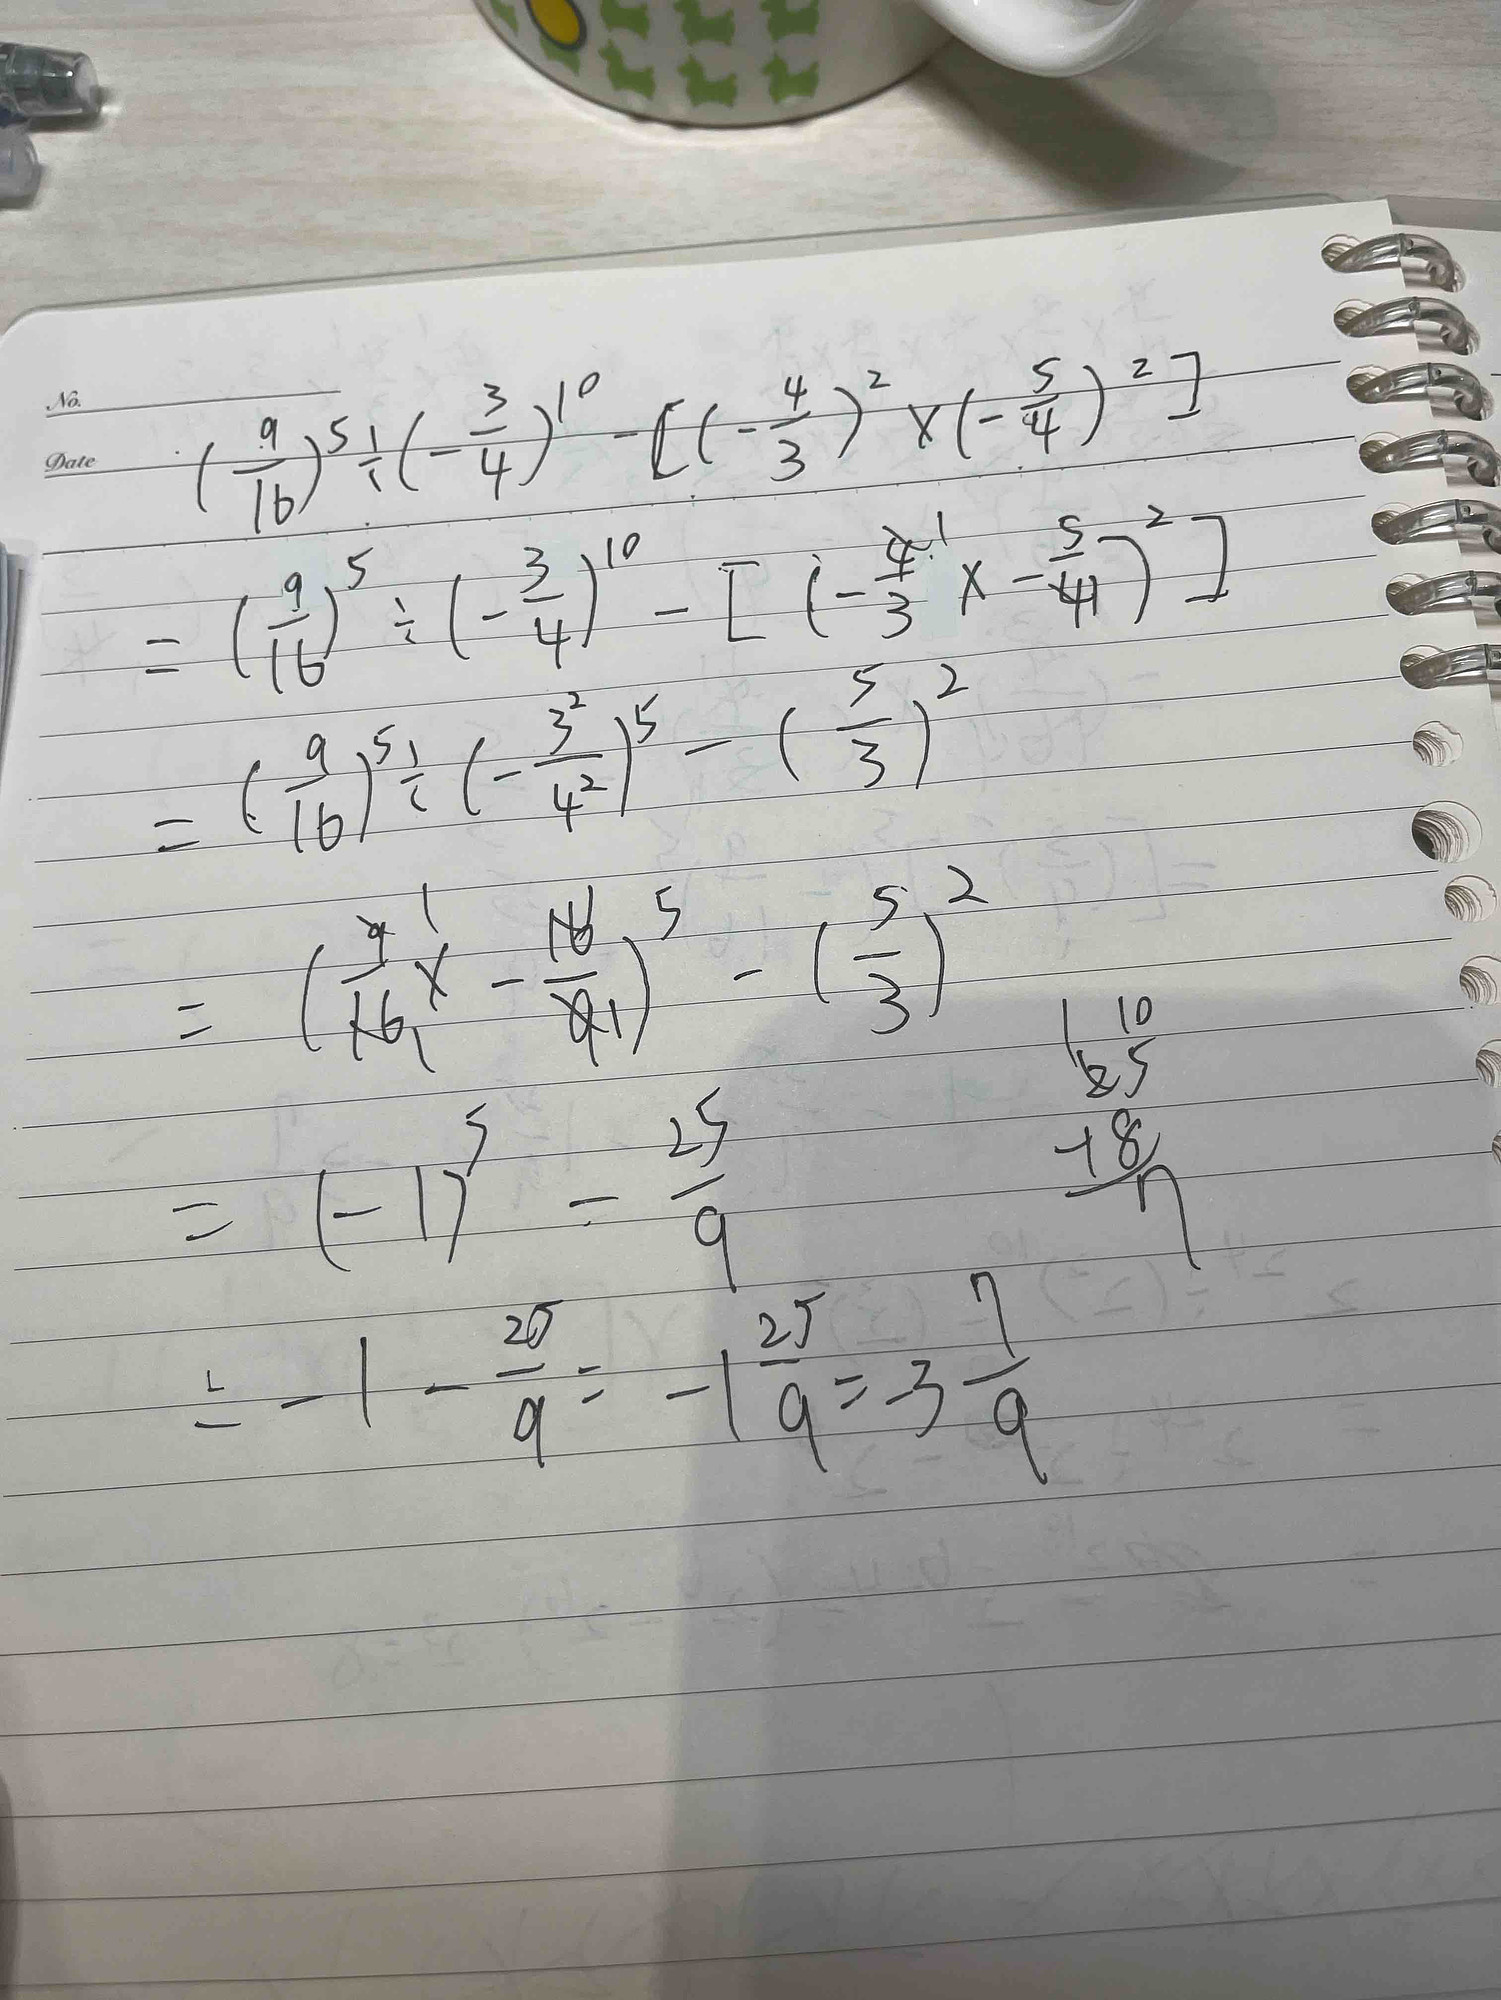 No.
Date
(9/16)^5 ÷ (-3/4)^10 - [(-4/3)^2 × (-5/4)^2]
= (9/16)^5 ÷ (-3/4)^10 - [(-4/3 × -5/4)^2]
= (9/16)^5 ÷ (-3^2/4^2)^5 - (5/3)^2
= (9/16 × -16/9)^5 - (5/3)^2
= (-1)^5 - 25/9
= -1 - 25/9 = -1 25/9 = -3 7/9
10
25
-18
7